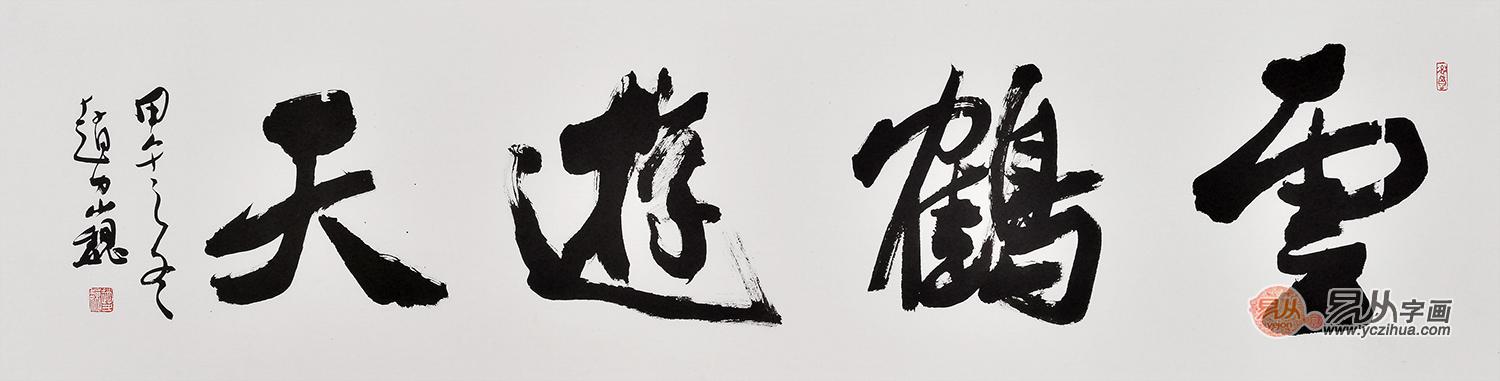 雲鶴遊天
甲午之冬
趙
易从
yejon
易从字画
www.yczihua.com